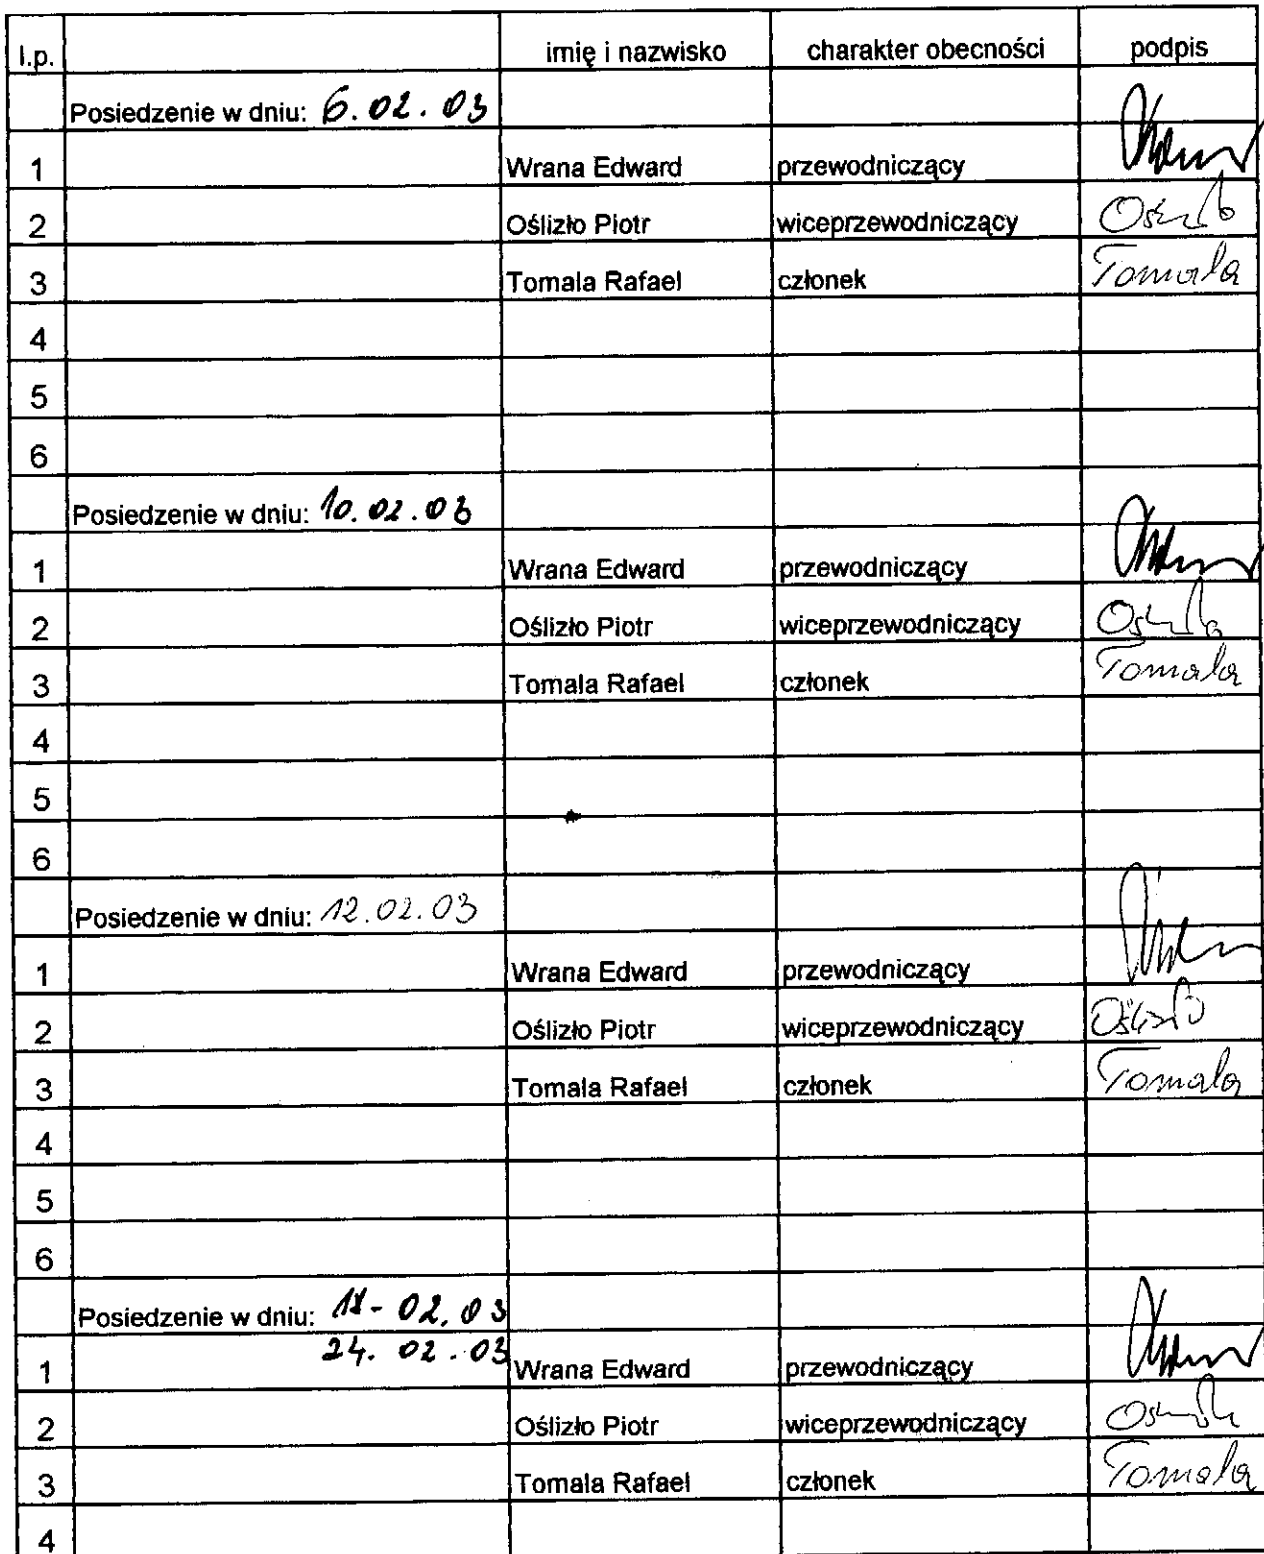 l.p. imię i nazwisko charakter obecności podpis
Posiedzenie w dniu: 6.02.03
1 Wrana Edward przewodniczący
2 Oślizło Piotr wiceprzewodniczący
3 Tomala Rafael członek Tomala
4
5
6
Posiedzenie w dniu: 10.02.03
1 Wrana Edward przewodniczący
2 Oślizło Piotr wiceprzewodniczący
3 Tomala Rafael członek Tomala
4
5
6
Posiedzenie w dniu: 12.02.03
1 Wrana Edward przewodniczący
2 Oślizło Piotr wiceprzewodniczący Oślizło
3 Tomala Rafael członek Tomala
4
5
6
Posiedzenie w dniu: 02.03
24.02.03
1 Wrana Edward przewodniczący
2 Oślizło Piotr wiceprzewodniczący
3 Tomala Rafael członek Tomala
4